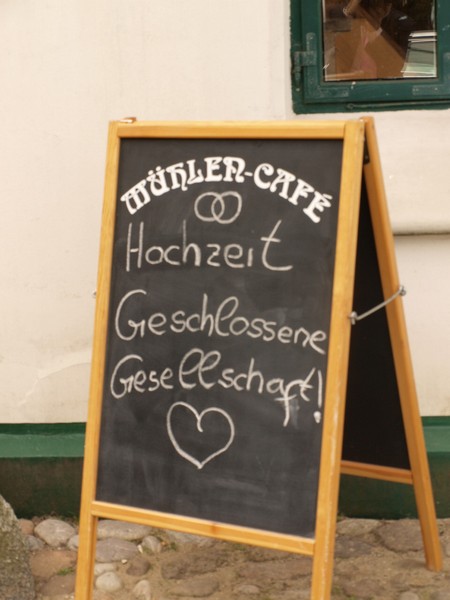 MÜHLEN-CAFÉ
Hochzeit
Geschlossene
Gesellschaft!